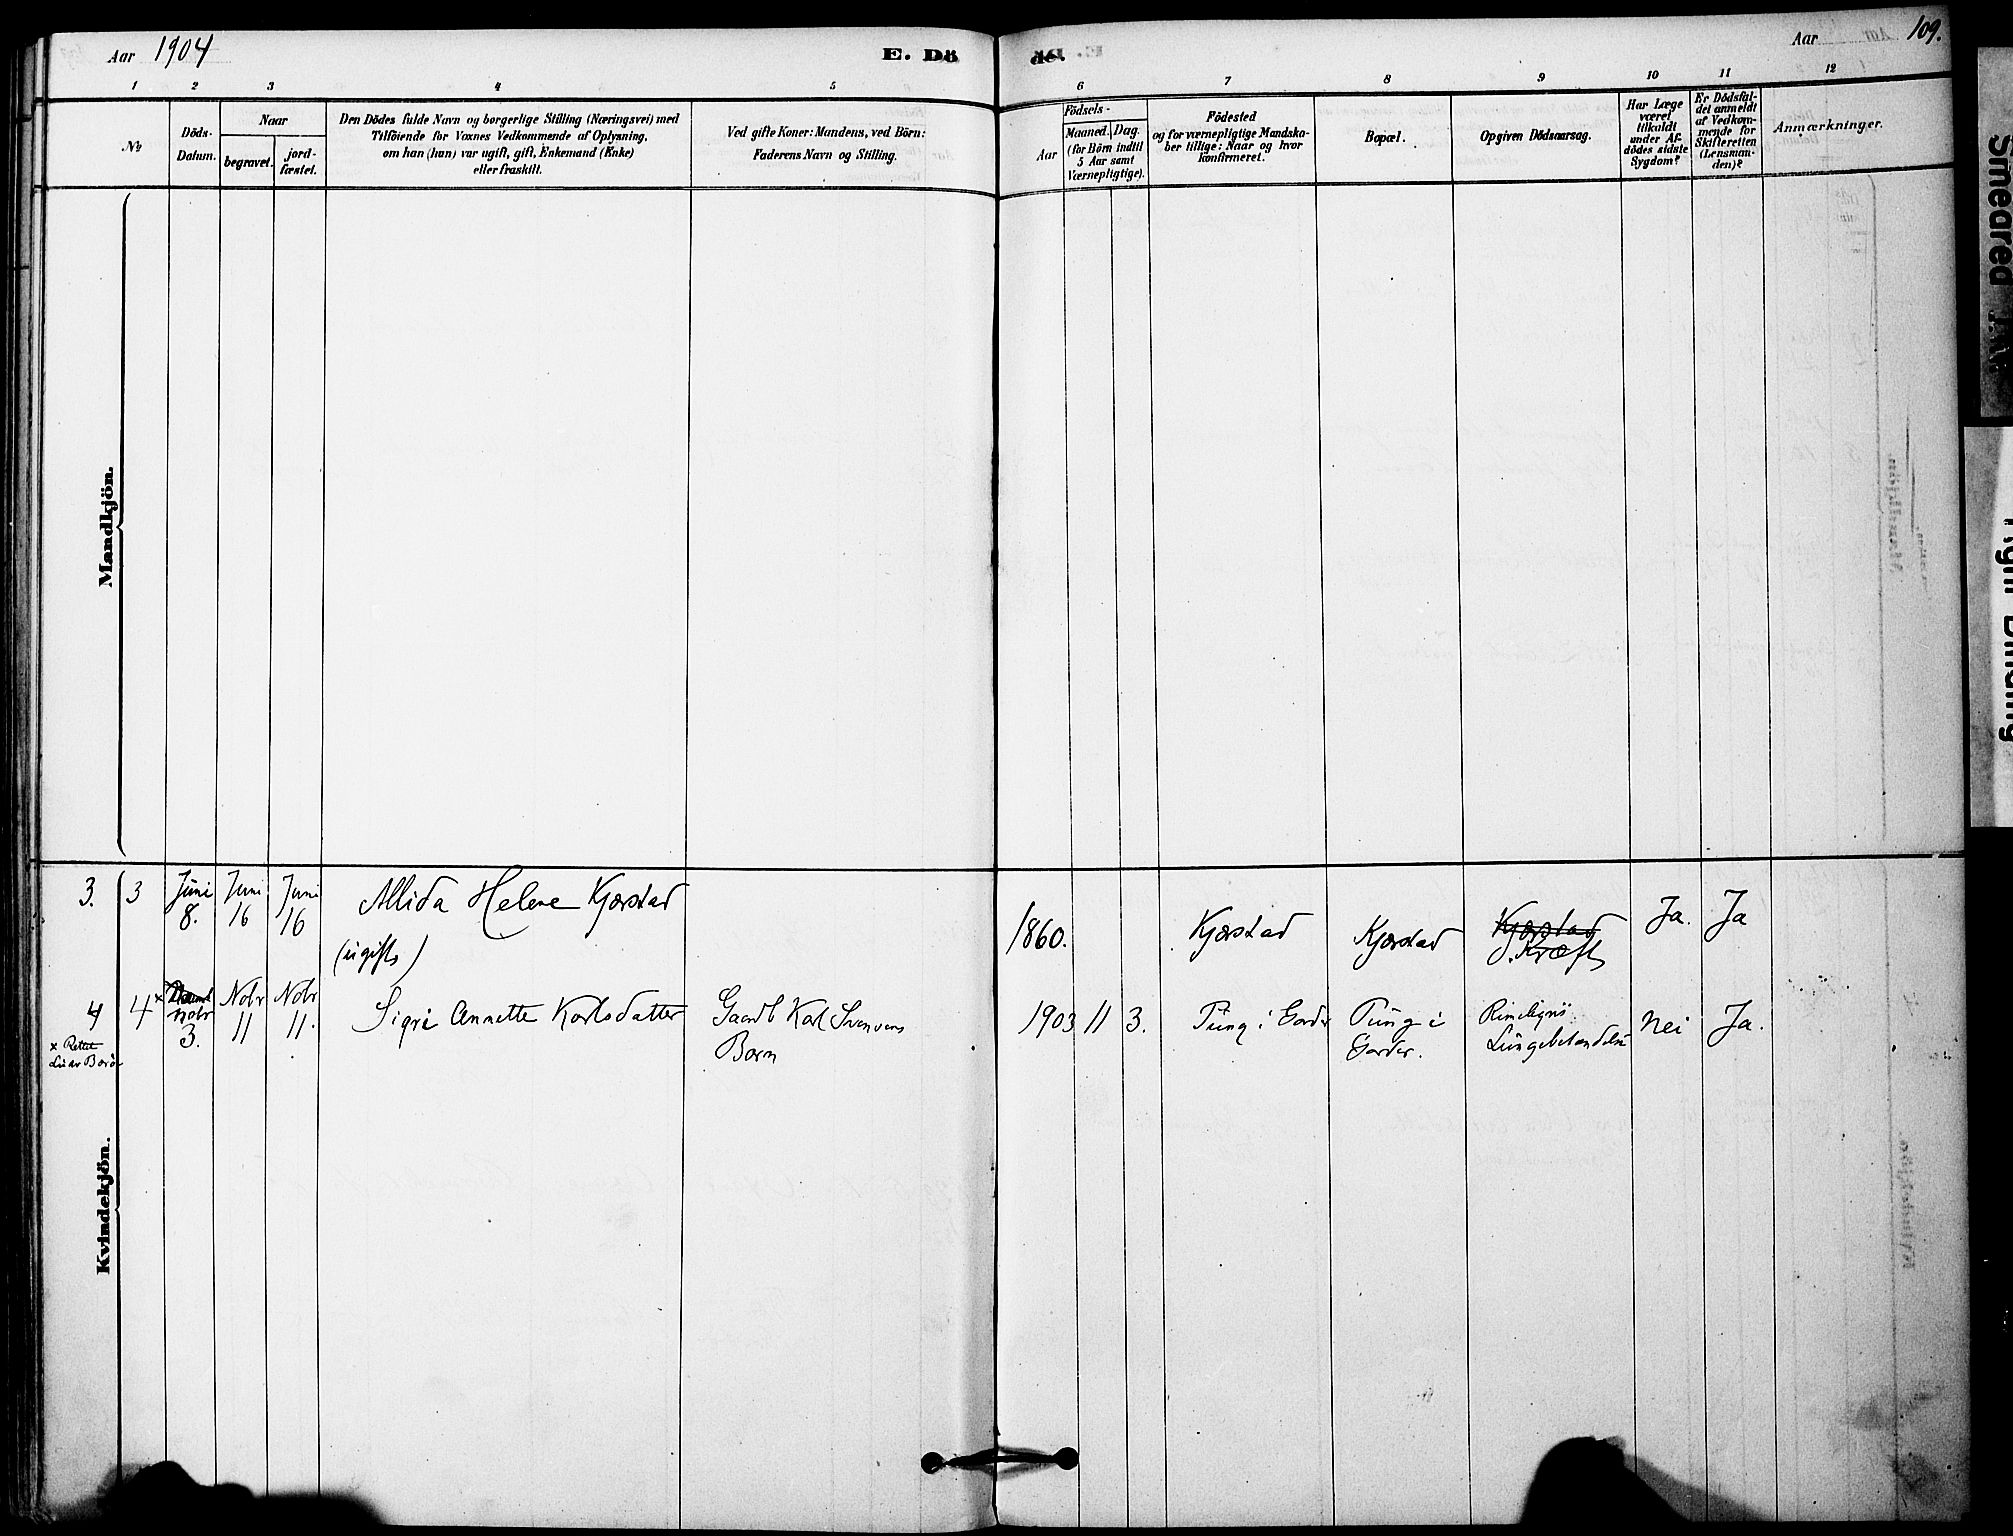 Aar 1904
E. Dö
döe.
Aar
109.
1 2 3 4 5 6 7 8 9 10 11 12
No
Döds-
Datum.
Naar
begravet.
jord-
fæstet.
Den Dödes fulde Navn og borgerlige Stilling (Næringsvei) med
Tilföiende for Voxnes Vedkommende af Oplysning,
om han (hun) var ugift, gift, Enkemand (Enke)
eller fraskilt.
Ved gifte Koner: Mandens, ved Börn:
Faderens Navn og Stilling.
Födsels-
Aar
Maaned.
Dag.
(for Börn indtil
5 Aar samt
Værnepligtige).
Födested
og for værnepligtige Mandska-
ber tillige: Naar og hvor
konfirmeret.
Bopæl.
Opgiven Dödsaarsag.
Har Læge
været
tilkaldt
under Af-
dödes sidste
Sygdom?
Er Dödsfal-
det anmeldt
af Vedkom-
mende for
Skifteretten
(Lensman-
den)?
Anmærkninger.
Mandkjön.
3. 3 Juni 8. Juni 16 Juni 16 Allida Helene Kjærstad
(ugift)
1860. Kjærstad Kjærstad Kjærstad Kræft Ja. Ja
4 4 x Novbr 3. Nobr 11 Nobr 11. Sigri Annette Karlsdatter Gaardb Karl Svensens
Barn
1903 11 3. Tüng i Tüng i Lüngebetændelse nei Ja.
x Rettet
Kvindekjön.
Smeared
Tight Binding